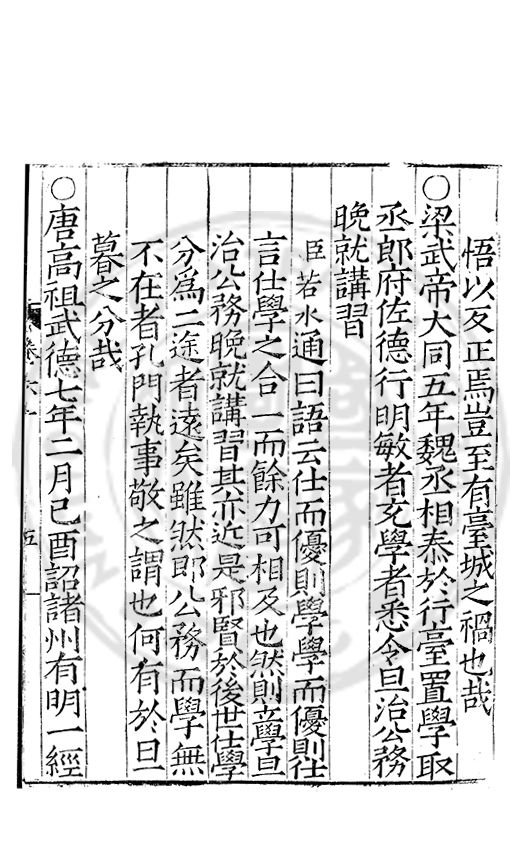 悟以反正焉豈至有臺城之禍也哉
○梁武帝大同五年魏丞相泰於行臺置學取
丞郎府佐德行明敏者充學者悉令旦治公務
晚就講習
臣若水通曰語云仕而優則學學而優則仕
言仕學之合一而餘力可相及也然則立學旦
治公務晚就講習其亦近是邪賢於後世仕學
分爲二途者遠矣雖然即公務而學無
不在者孔門執事敬之謂也何有於旦
暮之分哉
○唐高祖武德七年二月己酉詔諸州有明一經
五